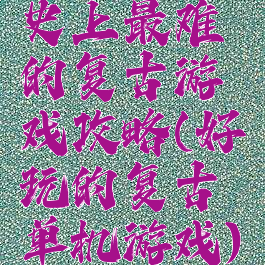 史上最难
的复古游
戏攻略(好
玩的复古
单机游戏)